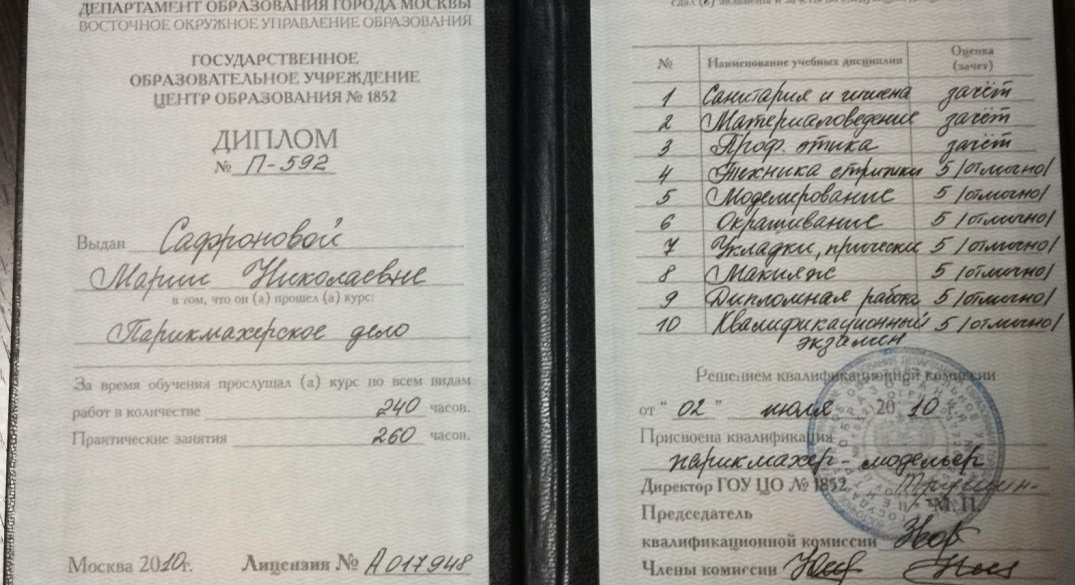 ДЕПАРТАМЕНТ ОБРАЗОВАНИЯ ГОРОДА МОСКВЫ
ВОСТОЧНОЕ ОКРУЖНОЕ УПРАВЛЕНИЕ ОБРАЗОВАНИЯ
ГОСУДАРСТВЕННОЕ
ОБРАЗОВАТЕЛЬНОЕ УЧРЕЖДЕНИЕ
ЦЕНТР ОБРАЗОВАНИЯ № 1852
ДИПЛОМ
№ П-592
Выдан Сафроновой
Марии Николаевне
в том, что он (а) прошел (а) курс:
Парикмахерское дело
За время обучения прослушал (а) курс по всем видам
работ в количестве 240 часов.
Практические занятия 260 часов.
Москва 2010г. Лицензия № А 017948
сдал (а) экзамены и зачеты по
№ Наименование учебных дисциплин Оценка (зачет)
1 Санитария и гигиена зачёт
2 Материаловедение зачёт
3 Проф. этика зачёт
4 Техника стрижки 5 /отлично/
5 Моделирование 5 /отлично/
6 Окрашивание 5 /отлично/
7 Укладки, прически 5 /отлично/
8 Макияж 5 /отлично/
9 Дипломная работа 5 /отлично/
10 Квалификационный 5 /отлично/
экзамен
Решением квалификационной комиссии
от "02" июля 2010 г.
Присвоена квалификация
парикмахер-модельер
Директор ГОУ ЦО № 1852
М.П.
Председатель
квалификационной комиссии
Члены комиссии